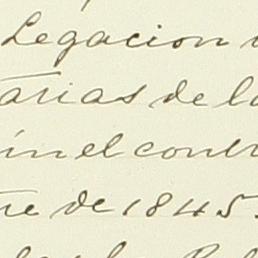 Legacion
arias de la
in el contr
re de 1845.